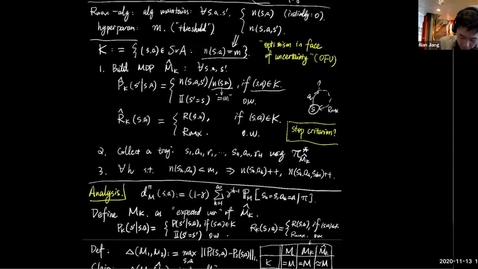 Rmax-alg: alg maintains: ∀s,a,s'. { n(s,a) (initially: 0).
hyperparam: m. ("threshold") { n(s,a,s').
K := {(s,a) ∈ S×A : n(s,a) = m}
"optimism in face of uncertainty" (OFU)
1. Build MDP M̂_K : ∀ s,a, s'
P̂_K(s'|s,a) = { n(s,a,s')/n(s,a) , if (s,a)∈K
= m
𝕀(s'=s) o.w.
R̂_K(s,a) = { R(s,a), if (s,a)∈K
Rmax, o.w.
s
Rmax
stop criterion?
2. Collect a traj: s₁,a₁,r₁,..., s_H,a_H,r_H using π*_M̂_K
3. ∀h s.t. n(s_h,a_h) < m, ⇒ n(s_h,a_h)++, n(s_h,a_h,s_h+1)++.
Analysis. d^π_M(s,a) = (1-γ) Σ γ^h-1 P_M[s_h=s, a_h=a | π]
Define M_K. as "expected ver" of M̂_K.
P_K(s'|s,a) = { P(s'|s,a), if (s,a)∈K
𝕀(s'=s) o.w.
R_K(s,a) = { R(s,a), if (s,a)∈K
Rmax o.w.
Def: Δ(M₁,M₂) := max s,a ||P₁(s,a) - P₂(s,a)||₁.
M M_K M̂_K
K =M =M ≈M
Nan Jiang
2020-11-13 1